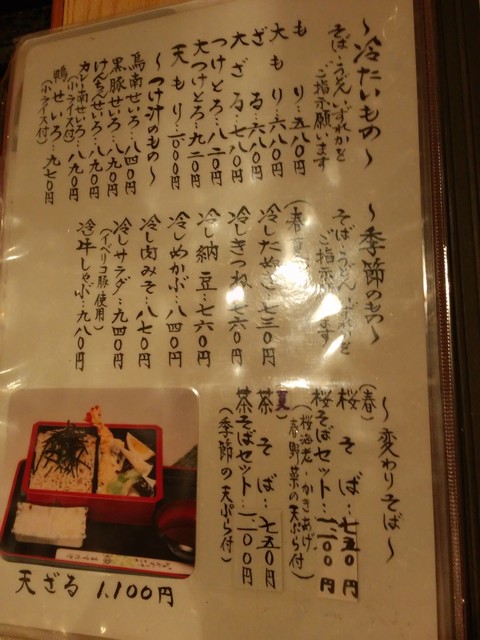 ～冷たいもの～
そば・うどんいずれかを
ご指示願います
もり‥五八〇円
大もり‥六八〇円
ざる‥六八〇円
大ざる‥七八〇円
つけとろ‥八二〇円
大つけとろ‥九二〇円
天もり‥一一〇〇円
～つけ汁のもの～
鳥南せいろ‥八四〇円
黒豚せいろ‥九五〇円
けんちんせいろ‥八九〇円
カレー南せいろ‥八九〇円
（小ライス付）
鴨せいろ‥九七〇円
（小ライス付）
～季節のもの～
そば・うどんいずれかを
ご指示願います
（春夏
冷したぬき‥七三〇円
冷しきつね‥七六〇円
冷し納豆‥七六〇円
冷しめかぶ‥八四〇円
冷し肉みそ‥八七〇円
冷しサラダ‥九四〇円
（イベリコ豚使用）
冷牛しゃぶ‥九八〇円
～変わりそば～
（春）
桜そば‥七五〇円
桜そばセット‥一一〇〇円
（桜海老・かきあげ
春野菜の天ぷら付）
夏
茶そば‥七五〇円
茶そばセット‥一一〇〇円
（季節の天ぷら付）
天ざる 1,100円